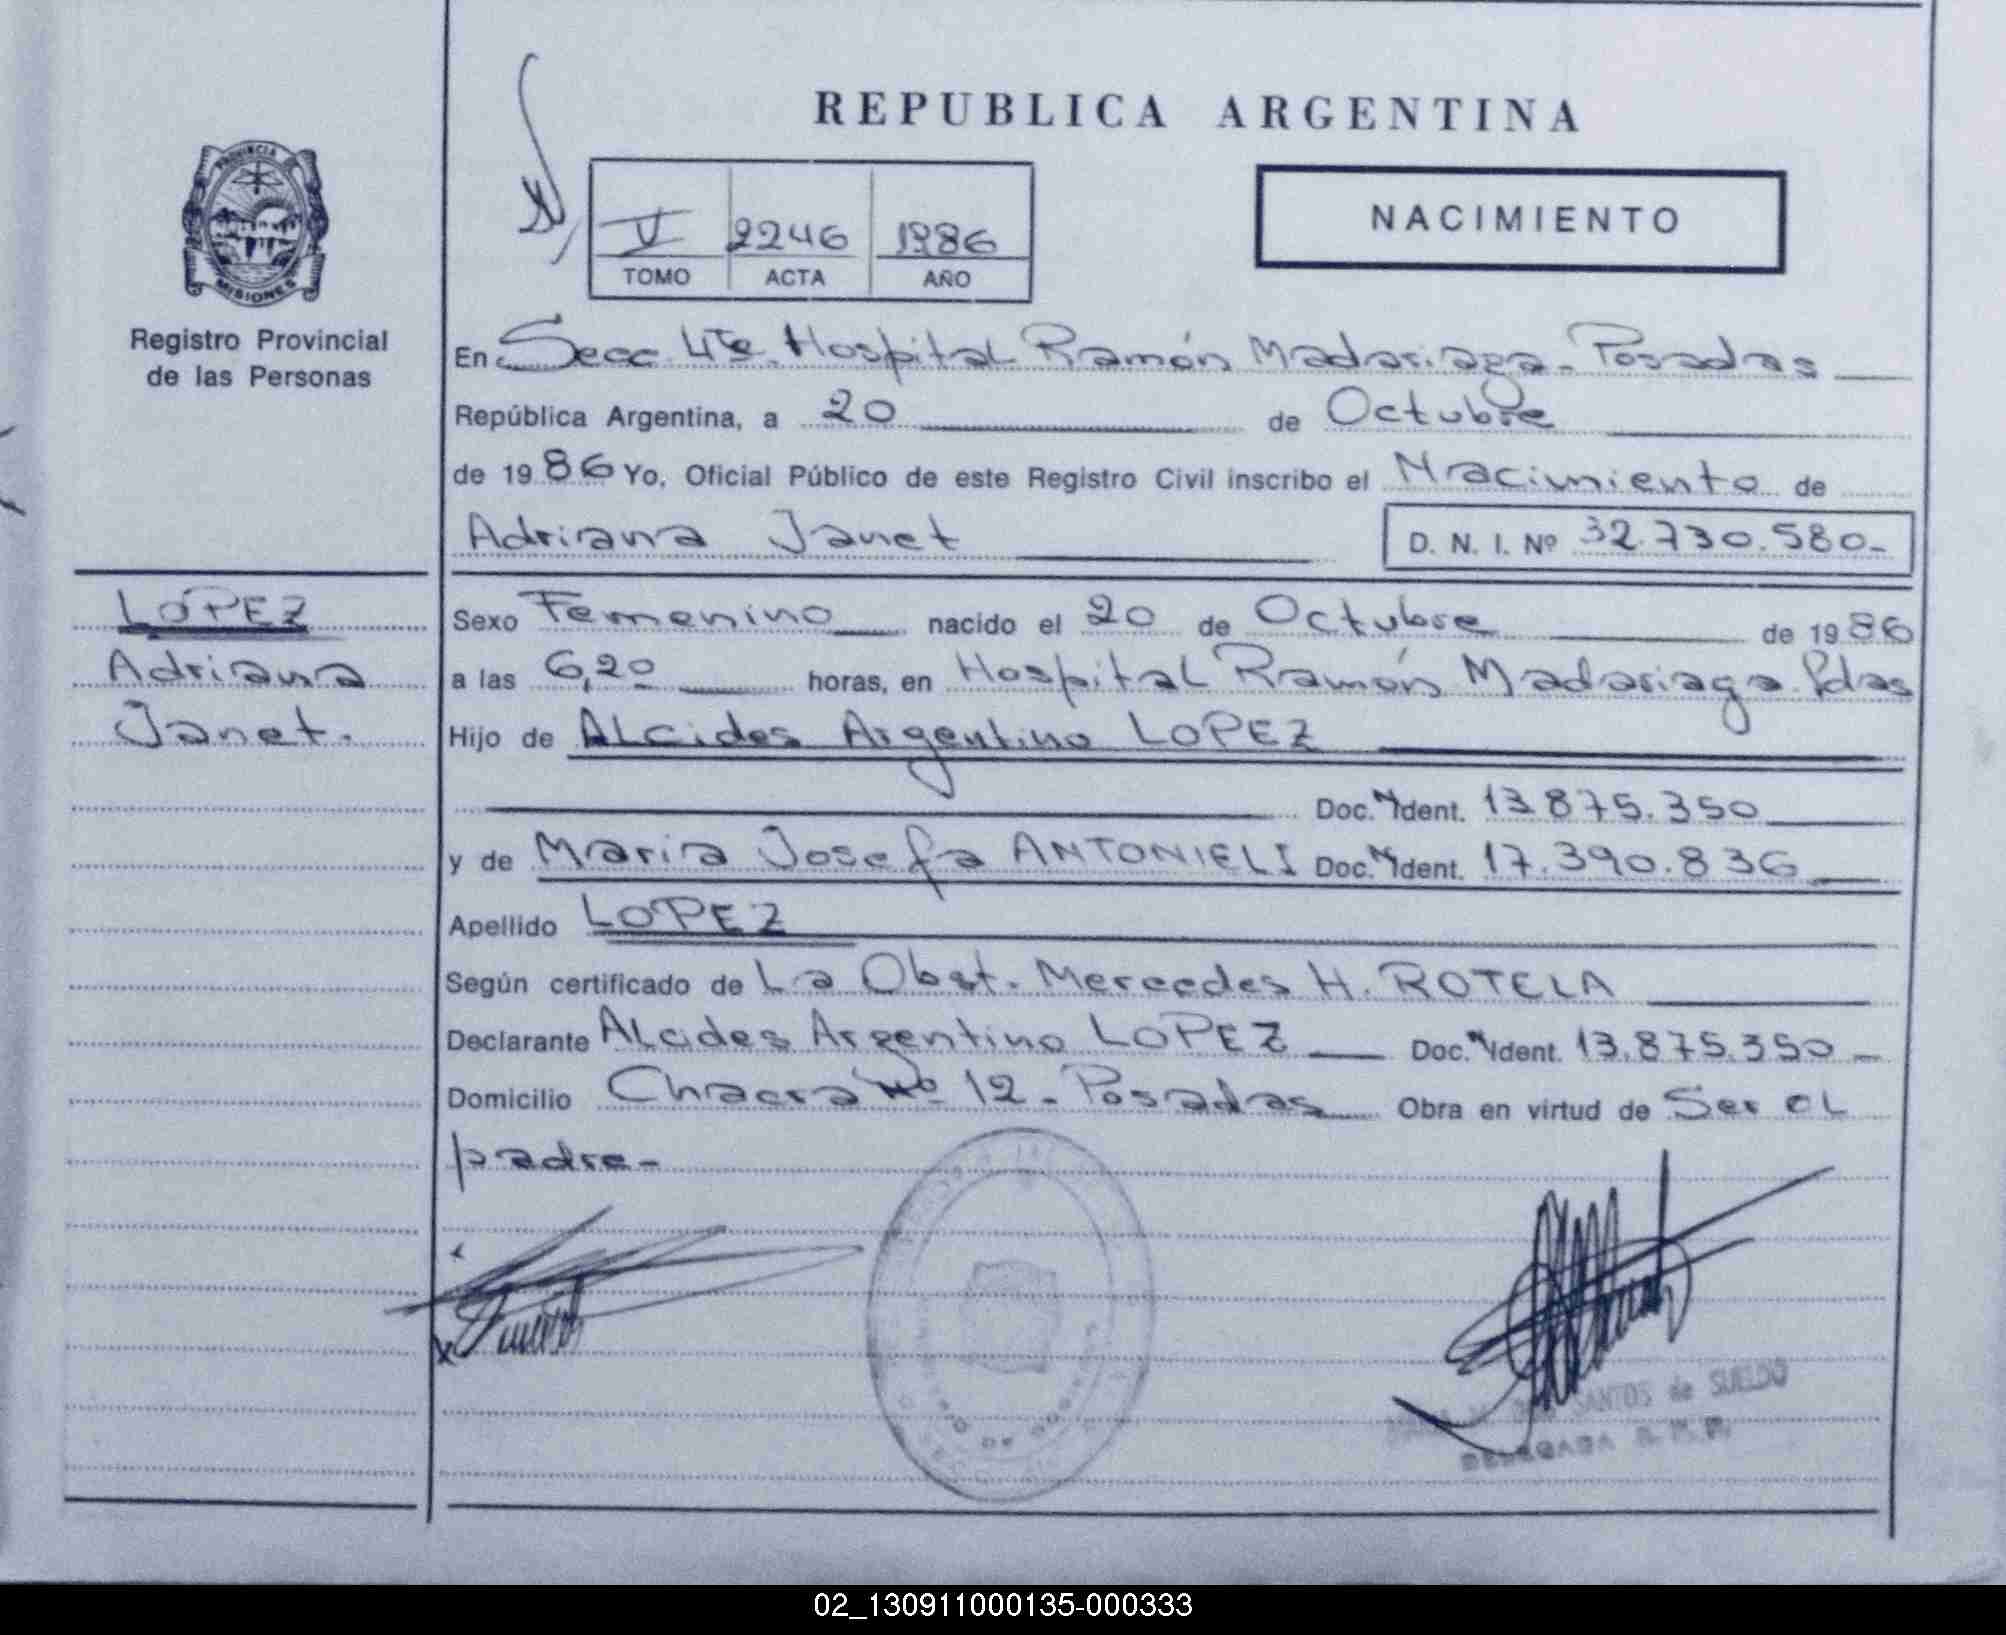 REPUBLICA ARGENTINA
PROVINCIA
MISIONES
Registro Provincial
de las Personas
V 2246 1986
TOMO ACTA AÑO
NACIMIENTO
En Secc. 4ta. Hospital Ramón Madariaga - Posadas
República Argentina, a 20 de Octubre
de 1986 Yo, Oficial Público de este Registro Civil inscribo el Nacimiento de
Adriana Janet D. N. I. Nº 32.730.580-
LOPEZ
Adriana
Janet.
Sexo Femenino nacido el 20 de Octubre de 1986
a las 6,20 horas, en Hospital Ramón Madariaga Pdas
Hijo de Alcides Argentino LOPEZ
Doc. Ident. 13.875.350
y de Maria Josefa ANTONIELI Doc. Ident. 17.390.836
Apellido LOPEZ
Según certificado de La Obst. Mercedes H. ROTELA
Declarante Alcides Argentino LOPEZ Doc. Ident. 13.875.350
Domicilio Chacra Nº 12 - Posadas Obra en virtud de Ser el
padre-
SANTOS de SUELDO
DELEGADA R. P. P.
02_130911000135-000333